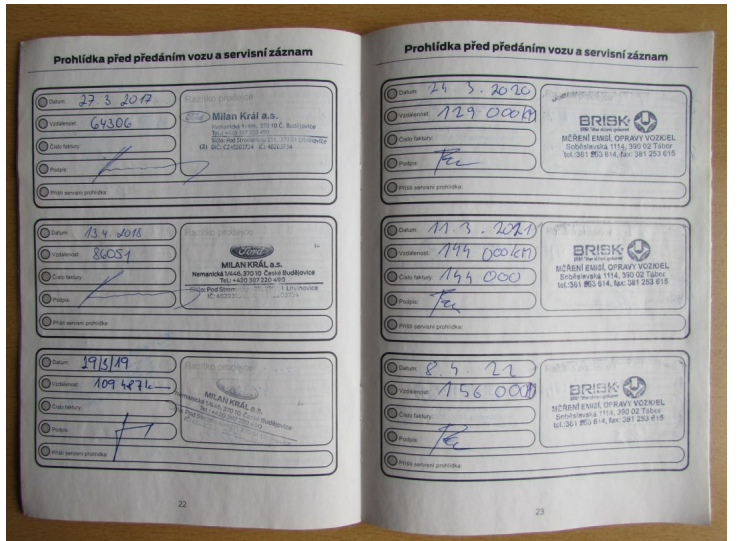 Prohlídka před předáním vozu a servisní záznam
Datum: 27 3 2017
Vzdálenost: 64306
Číslo faktury:
Podpis:
Příští servisní prohlídka:
Razítko prodejce
Milan Král a.s.
Nemanická 1/446, 370 10 Č. Budějovice
Tel.: +420 387 220 490
(2)
Datum: 13 4. 2018
Vzdálenost: 86051
Číslo faktury:
Podpis:
Příští servisní prohlídka:
Razítko prodejce
Ford
MILAN KRÁL a.s.
Nemanická 1/446, 370 10 České Budějovice
Tel.: +420 387 220 490
Datum: 19/3/19
Vzdálenost: 109 487k
Číslo faktury:
Podpis:
Příští servisní prohlídka:
MILAN KRÁL a.s.
Nemanická 1/446, 370 10 České Budějovice
22
Prohlídka před předáním vozu a servisní záznam
Datum: 24 3. 2020
Vzdálenost: 129 000 km
Číslo faktury:
Podpis:
Příští servisní prohlídka:
BRISK
MĚŘENÍ EMISÍ, OPRAVY VOZIDEL
Soběslavská 1114, 390 02 Tábor
tel.:381 253 614, fax: 381 253 615
Datum: 11. 3. 2021
Vzdálenost: 144 000 km
Číslo faktury: 144 000
Podpis:
Příští servisní prohlídka:
BRISK
MĚŘENÍ EMISÍ, OPRAVY VOZIDEL
Soběslavská 1114, 390 02 Tábor
tel.:381 253 614, fax: 381 253 615
Datum: 8. 4. 22
Vzdálenost: 156 000
Číslo faktury:
Podpis:
Příští servisní prohlídka:
BRISK
MĚŘENÍ EMISÍ, OPRAVY VOZIDEL
Soběslavská 1114, 390 02 Tábor
tel.:381 253 614, fax: 381 253 615
23